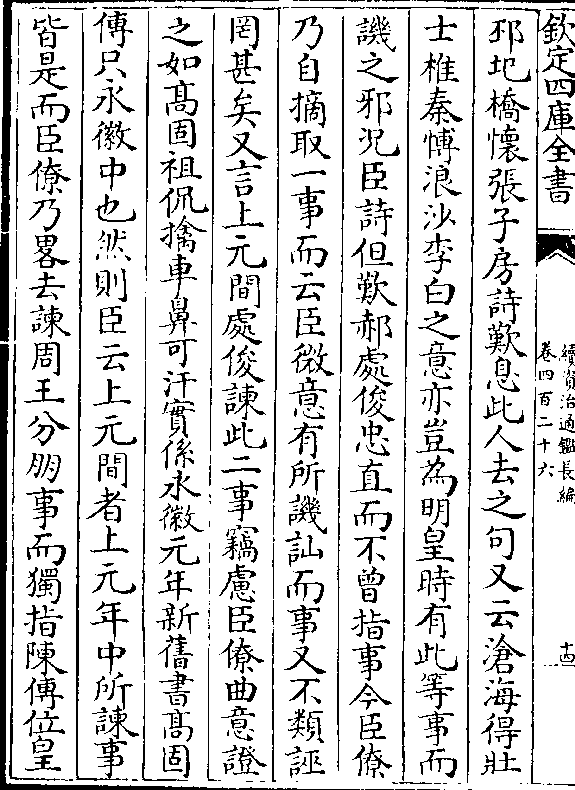 欽定四庫全書
續資治通鑑長編
卷四百二十六
十四
邳圯橋懷張子房詩歎息此人去之句又云滄海得壯
士椎秦愽浪沙李白之意亦豈為明皇時有此等事而
譏之邪况臣詩但歎郝處俊忠直而不曾指事今臣僚
乃自摘取一事而云臣微意有所譏訕而事又不類誣
罔甚矣又言上元間處俊諫此二事竊慮臣僚曲意證
之如髙固祖侃擒車鼻可汗實係永徽元年新舊書髙固
傳只永徽中也然則臣云上元間者上元年中所諫事
皆是而臣僚乃畧去諫周王分朋事而獨指陳傳位皇